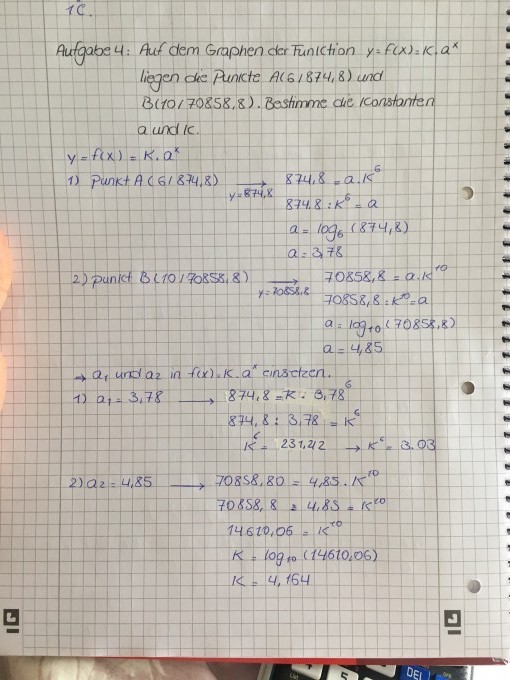 1C.
Aufgabe 4: Auf dem Graphen der Funktion y=f(x)=K.a^x
liegen die Punkte A(6/874,8) und
B(10/70858,8). Bestimme die Konstanten
a und K.
y = f(x) = K.a^x
1) Punkt A (6/874,8) → y=874,8 874,8 = a.K^6
874,8 : K^6 = a
a = log₆ (874,8)
a = 3,78
2) Punkt B (10/70858,8) → y=70858,8 70858,8 = a.K^10
70858,8 : K^10 = a
a = log₁₀ (70858,8)
a = 4,85
→ a₁ und a₂ in f(x).K.a^x einsetzen.
1) a₁ = 3,78 → 874,8 = K . 3,78^6
874,8 : 3,78 = K^6
K^6 = 231,42 → K^6 = 3.03
2) a₂ = 4,85 → 70858,80 = 4,85 . K^10
70858,8 : 4,85 = K^10
14610,06 = K^10
K = log₁₀ (14610,06)
K = 4,164
DEL